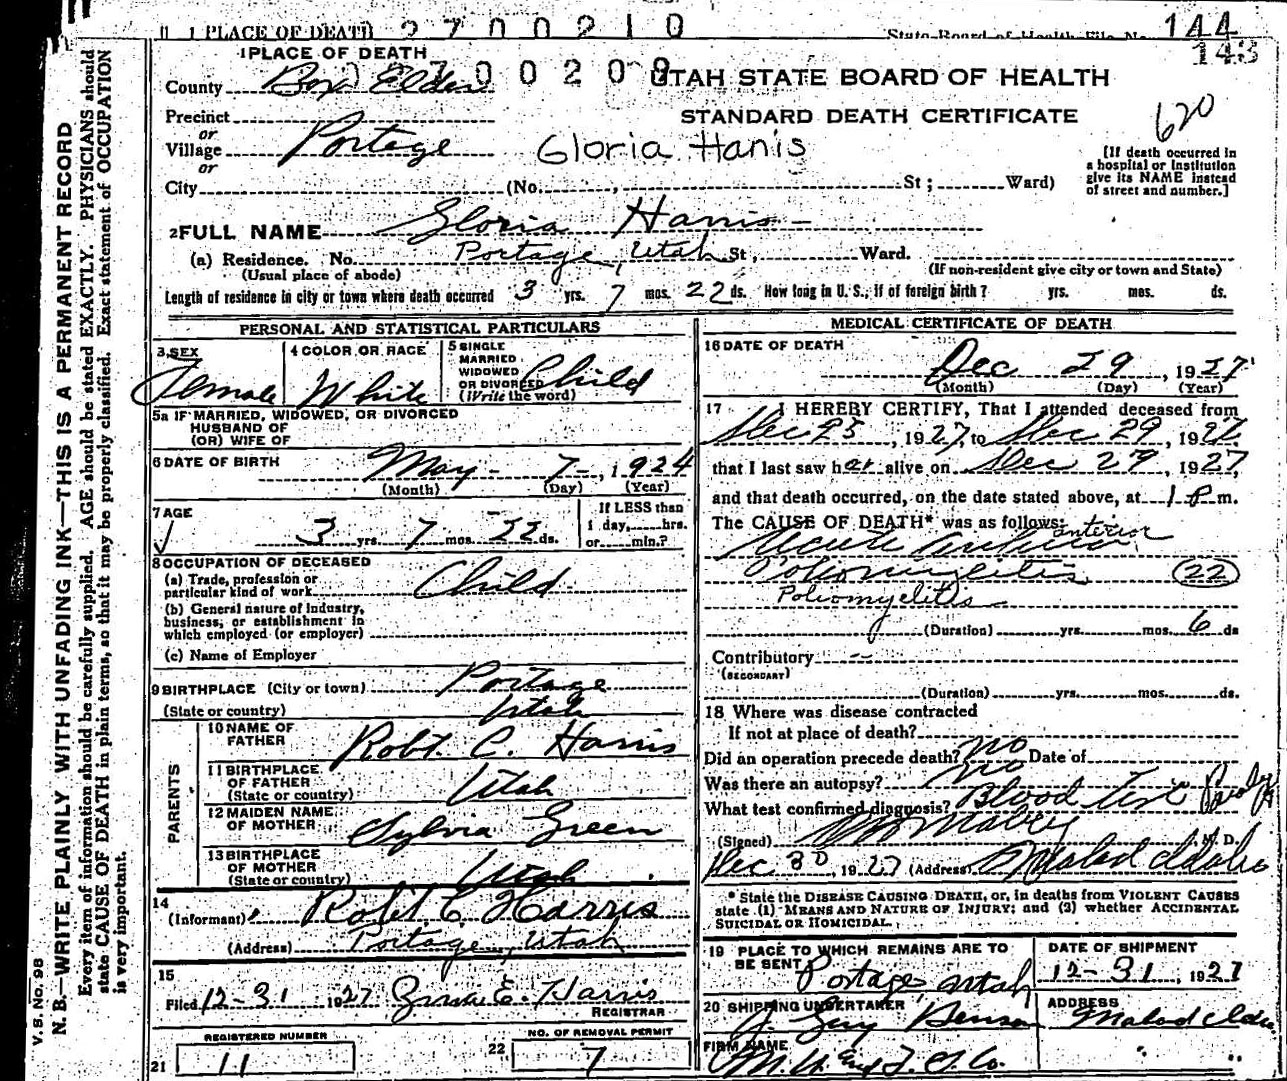 1 PLACE OF DEATH 2700210 State Board of Health File No. 144
143
1 PLACE OF DEATH 2700209 UTAH STATE BOARD OF HEALTH
County Box Elder
STANDARD DEATH CERTIFICATE
620
Precinct
or
Village Portage Gloria Hanis
or
[If death occurred in
a hospital or Institution
give its NAME instead
of street and number.]
City (No. , St ; Ward)
2 FULL NAME Gloria Harris
(a) Residence. No. Portage, Utah St , Ward.
(Usual place of abode) (If non-resident give city or town and State)
Length of residence in city or town where death occurred 3 yrs. 7 mos. 22 ds. How long in U. S., if of foreign birth? yrs. mos. ds.
PERSONAL AND STATISTICAL PARTICULARS
3 SEX Female
4 COLOR OR RACE White
5 SINGLE
MARRIED
WIDOWED
OR DIVORCED Child
(Write the word)
5a IF MARRIED, WIDOWED, OR DIVORCED
HUSBAND OF
(OR) WIFE OF
6 DATE OF BIRTH May - 7 - , 1924
(Month) (Day) (Year)
7 AGE
3 yrs. 7 mos. 22 ds.
If LESS than
1 day, hrs.
or min.?
8 OCCUPATION OF DECEASED
(a) Trade, profession or
particular kind of work Child
(b) General nature of Industry,
business, or establishment in
which employed (or employer)
(c) Name of Employer
9 BIRTHPLACE (City or town) Portage
(State or country) Utah
PARENTS
10 NAME OF
FATHER Robt. C. Harris
11 BIRTHPLACE
OF FATHER
(State or country) Utah
12 MAIDEN NAME
OF MOTHER Sylvia Green
13 BIRTHPLACE
OF MOTHER
(State or country) Utah
14
(Informant) Robt C Harris
(Address) Portage, Utah
15
Filed 12-31 1927 E. Harris
REGISTRAR
REGISTERED NUMBER
21 11
NO. OF REMOVAL PERMIT
22 7
MEDICAL CERTIFICATE OF DEATH
16 DATE OF DEATH
Dec 29, 1927
(Month) (Day) (Year)
17 I HEREBY CERTIFY, That I attended deceased from
Dec 25, 1927, to Dec 29, 1927,
that I last saw her alive on Dec 29, 1927,
and that death occurred, on the date stated above, at 1 P m.
The CAUSE OF DEATH* was as follows:
anterior
Acute
Poliomyelitis (22)
Poliomyelitis
(Duration) yrs. mos. 6 ds
Contributory --
(SECONDARY)
(Duration) yrs. mos. ds.
18 Where was disease contracted
If not at place of death?
Did an operation precede death? no Date of
Was there an autopsy? no
What test confirmed diagnosis? Blood Test
(Signed) Mabey M. D.
Dec 30, 1927 (Address) Malad Idaho
* State the DISEASE CAUSING DEATH, or, in deaths from VIOLENT CAUSES
state (1) MEANS AND NATURE OF INJURY; and (2) whether ACCIDENTAL
SUICIDAL OR HOMICIDAL.
19 PLACE TO WHICH REMAINS ARE TO
BE SENT Portage Utah
DATE OF SHIPMENT
12-31, 1927
20 SHIPPING UNDERTAKER
Benson
ADDRESS
Malad Idaho
FIRM NAME
Co.
V. S. No. 98
N. B.—WRITE PLAINLY WITH UNFADING INK—THIS IS A PERMANENT RECORD
Every item of information should be carefully supplied. AGE should be stated EXACTLY. PHYSICIANS should
state CAUSE OF DEATH in plain terms, so that it may be properly classified. Exact statement of OCCUPATION
is very important.